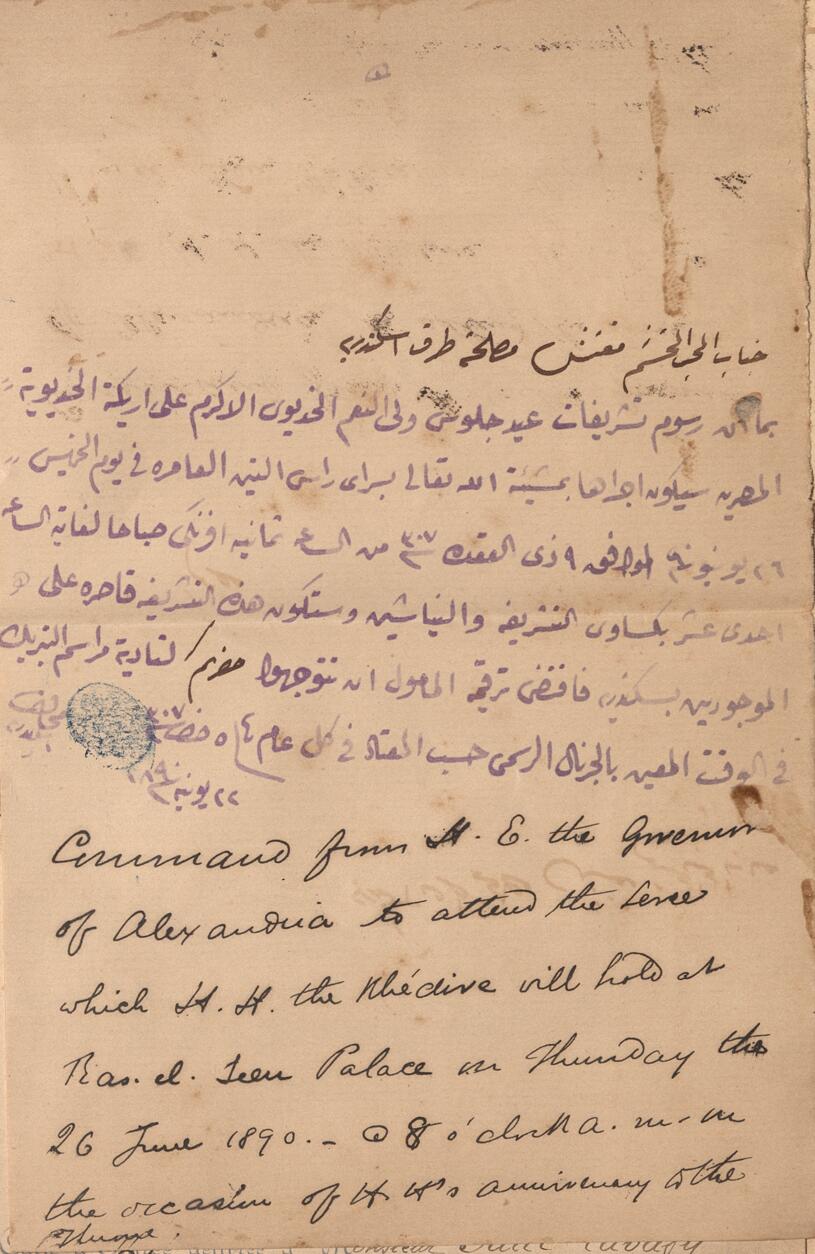 جناب المحترم مفتش مصلحة طرف اسكندرية
بما ان رسوم تشريفات عيد جلوس ولى النعم الخديوى الاكرم على اريكة الخديوية
المصرية سيكون اجراها بمشيئة الله تعالى بسراى راس التين العامره فى يوم الخميس
٢٦ يونيو ٩٠ الموافق ٩ ذى القعده ٣٠٧ من الساعه ثمانيه افرنكى صباحا لغاية الساعه
احدى عشر بكساوى التشريفه والنياشين وستكون هذه التشريفه قاصره على
الموجودين بسكندريه فاقتضى ترقيمه المامول ان تتوجهوا حضرتكم لتادية مراسم التبريك
فى الوقت المعين بالجرنال الرسمى حسب المعتاد فى كل عام ٣٠٧
محافظ
٢٢ يونيه ٨٩٠
Command from H. E. the Governor
of Alexandria to attend the Levee
which H. H. the Khédive will hold at
Ras. el. Teen Palace on Thursday the
26 June 1890. - @ 8 o'clock a. m. on
the occasion of H H's anniversary to the
Throne.